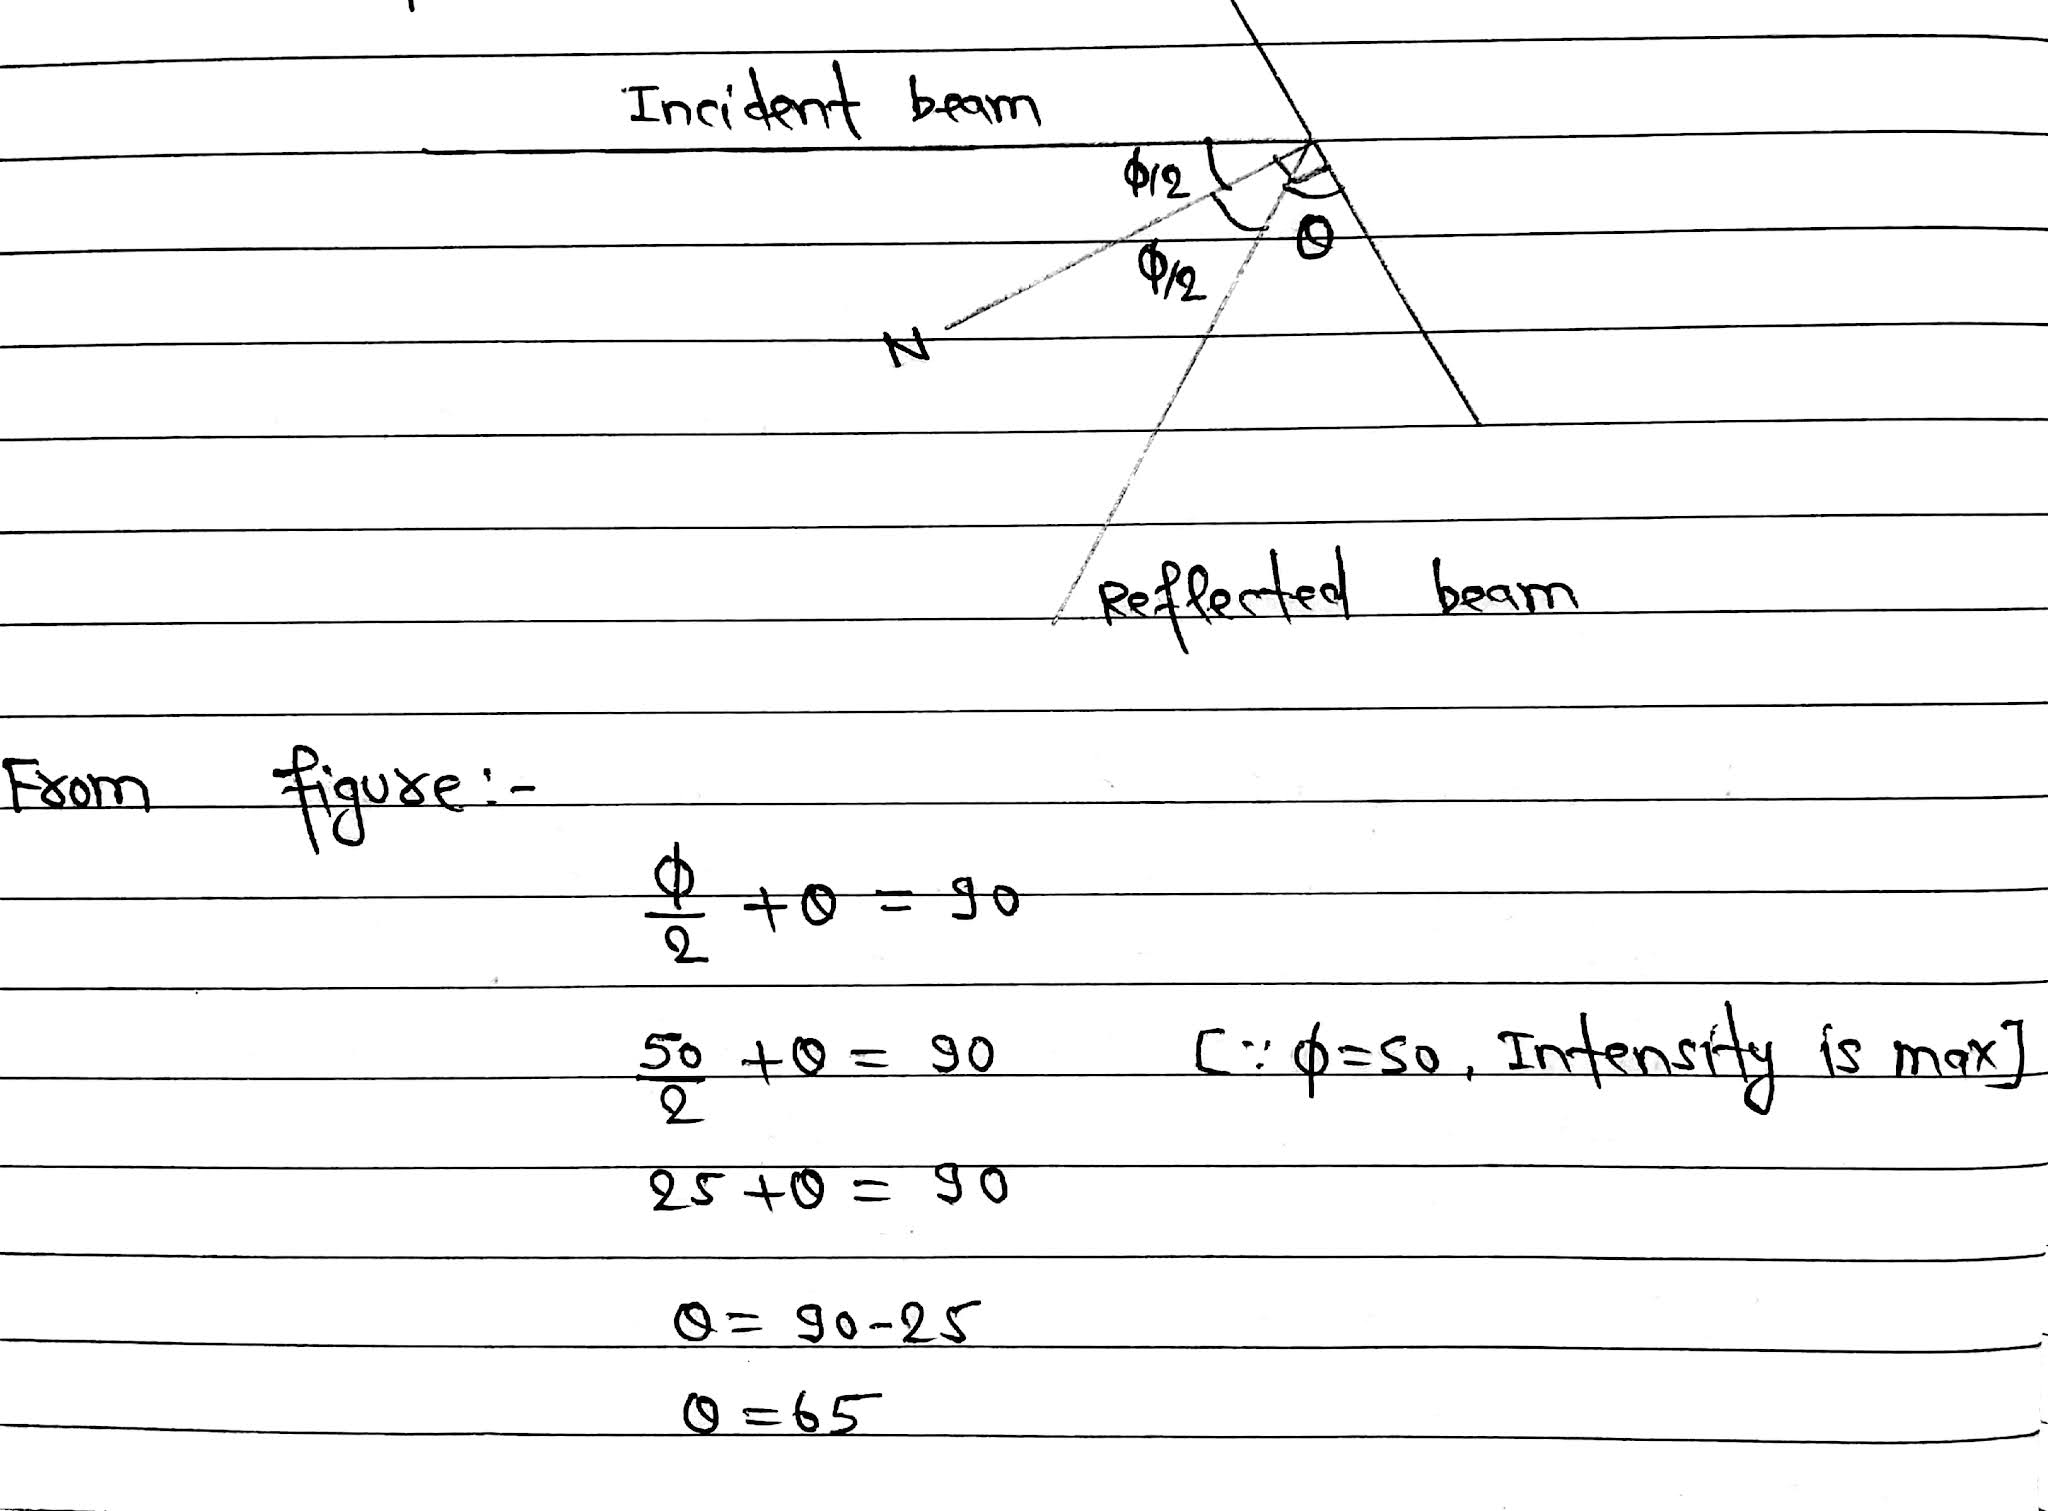 Incident beam
ϕ/2
θ
ϕ/2
N
Reflected beam
From figure:-
ϕ/2 + θ = 90
50/2 + θ = 90 [∵ ϕ=50, Intensity is max]
25 + θ = 90
θ = 90-25
θ = 65